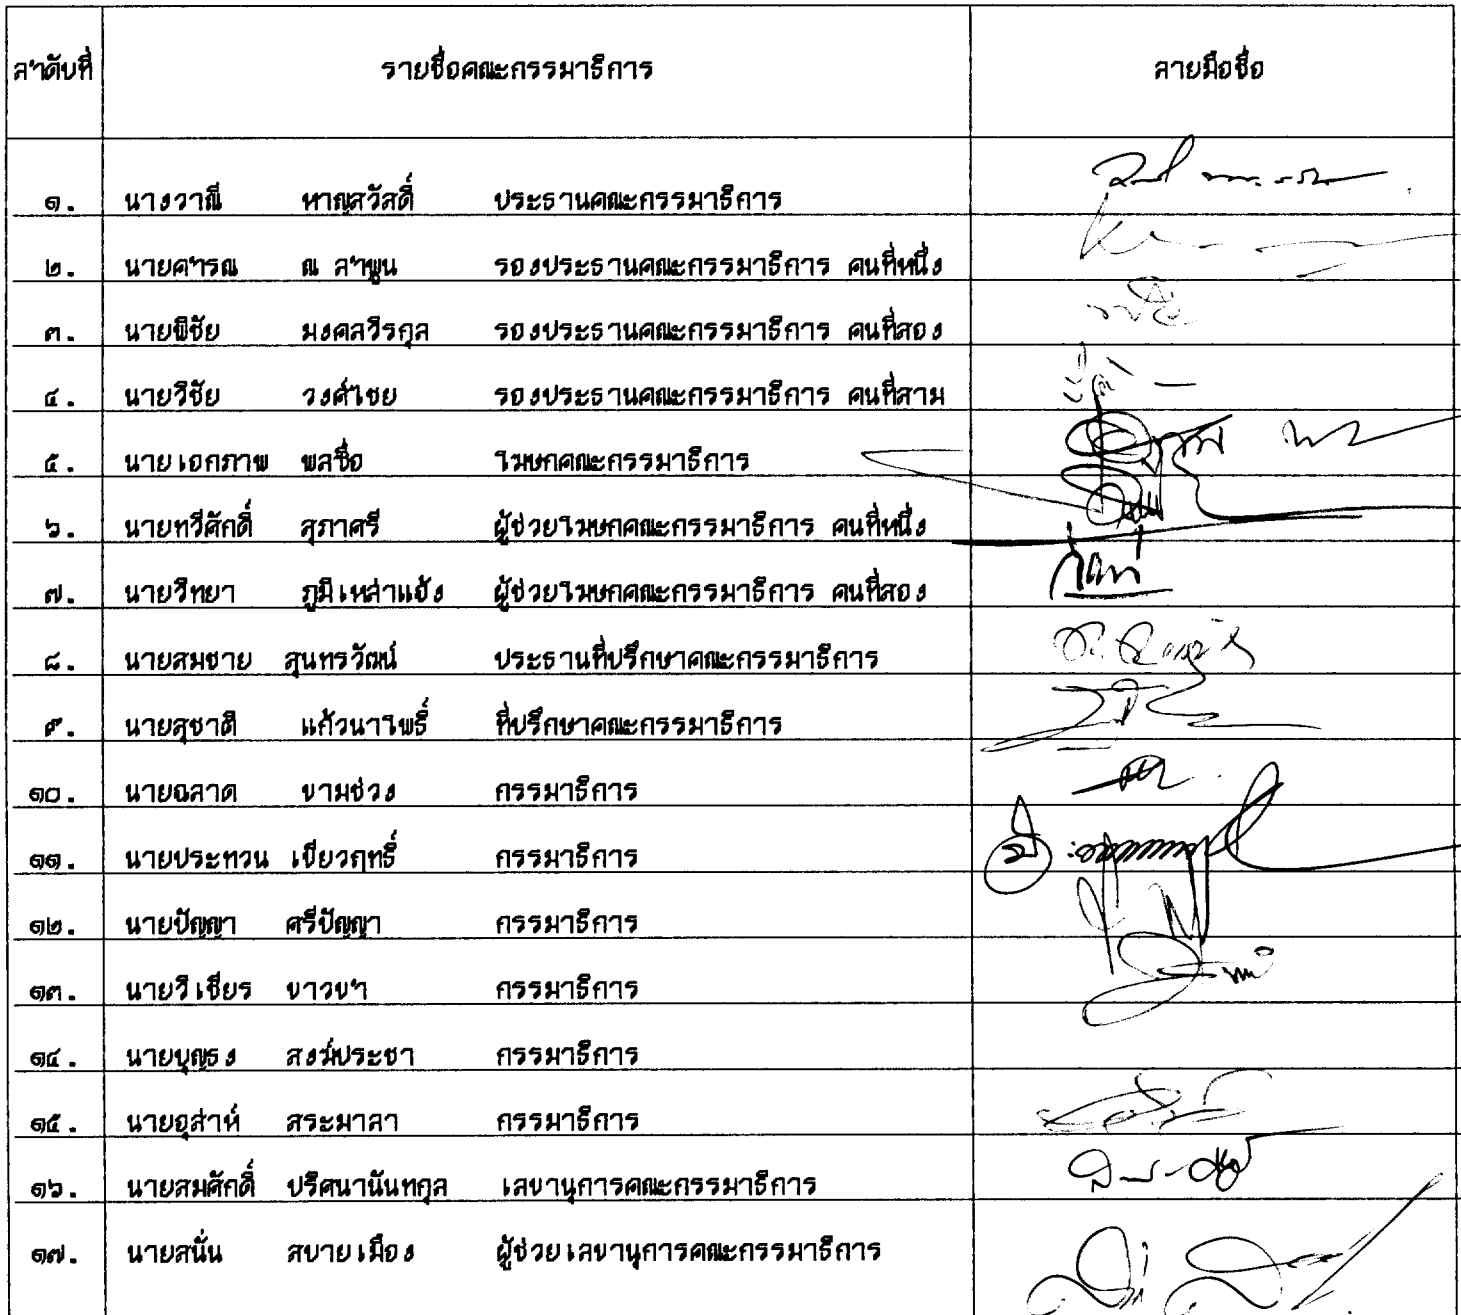 ลำดับที่ รายชื่อคณะกรรมาธิการ ลายมือชื่อ
๑. นางวาณี หาญสวัสดิ์ ประธานคณะกรรมาธิการ
๒. นายคำรณ ณ ลำพูน รองประธานคณะกรรมาธิการ คนที่หนึ่ง
๓. นายพิชัย มงคลวิรกุล รองประธานคณะกรรมาธิการ คนที่สอง
๔. นายวิชัย วงศ์ไชย รองประธานคณะกรรมาธิการ คนที่สาม
๕. นายเอกภาพ พลซื่อ โฆษกคณะกรรมาธิการ
๖. นายทวีศักดิ์ สุภาศรี ผู้ช่วยโฆษกคณะกรรมาธิการ คนที่หนึ่ง
๗. นายวิทยา ภูมิเหล่าแจ้ง ผู้ช่วยโฆษกคณะกรรมาธิการ คนที่สอง
๘. นายสมชาย สุนทรวัฒน์ ประธานที่ปรึกษาคณะกรรมาธิการ
๙. นายสุชาติ แก้วนาโพธิ์ ที่ปรึกษาคณะกรรมาธิการ
๑๐. นายฉลาด ขามช่วง กรรมาธิการ
๑๑. นายประทวน เขียวฤทธิ์ กรรมาธิการ
๑๒. นายปัญญา ศรีปัญญา กรรมาธิการ
๑๓. นายวิเชียร ขาวขำ กรรมาธิการ
๑๔. นายบุญธง สงฆ์ประชา กรรมาธิการ
๑๕. นายอุส่าห์ สระมาลา กรรมาธิการ
๑๖. นายสมศักดิ์ ปริศนานันทกุล เลขานุการคณะกรรมาธิการ
๑๗. นายสนั่น สบายเมือง ผู้ช่วยเลขานุการคณะกรรมาธิการ